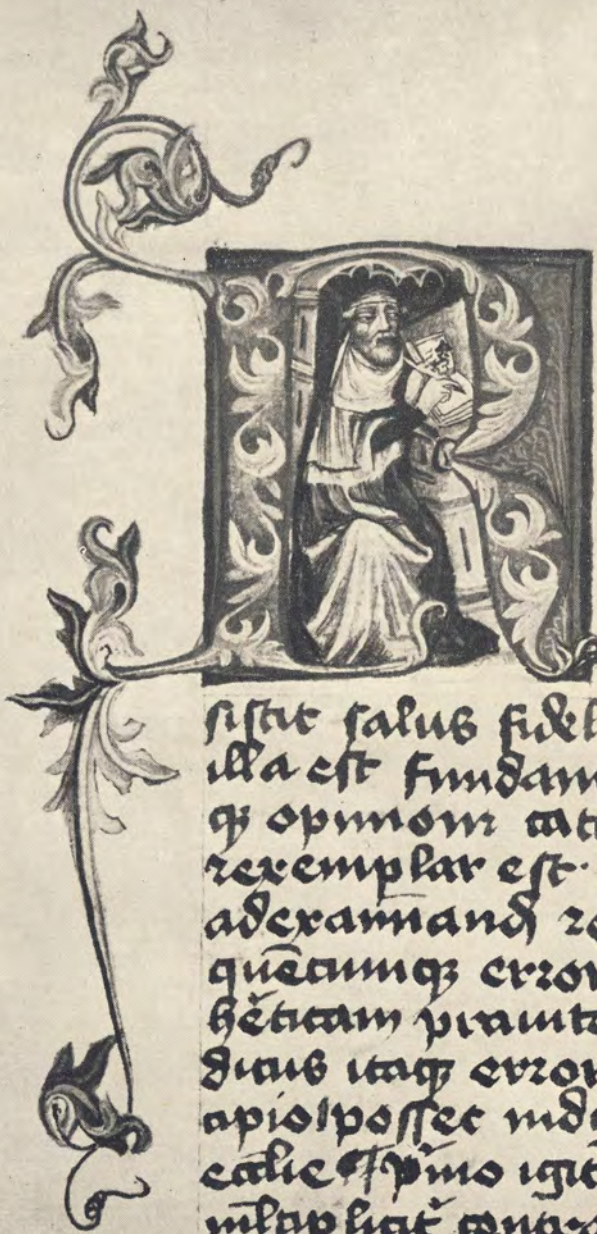 R
sistit salus fidel
illa est fundam
qꝫ opinionī cat
⁊ exemplar est.
ad examinand
quēcumqꝫ error
hēticam prauita
dictus itaqꝫ error
cipio posset ind
ecclie ¶ pͥmo igit
contra